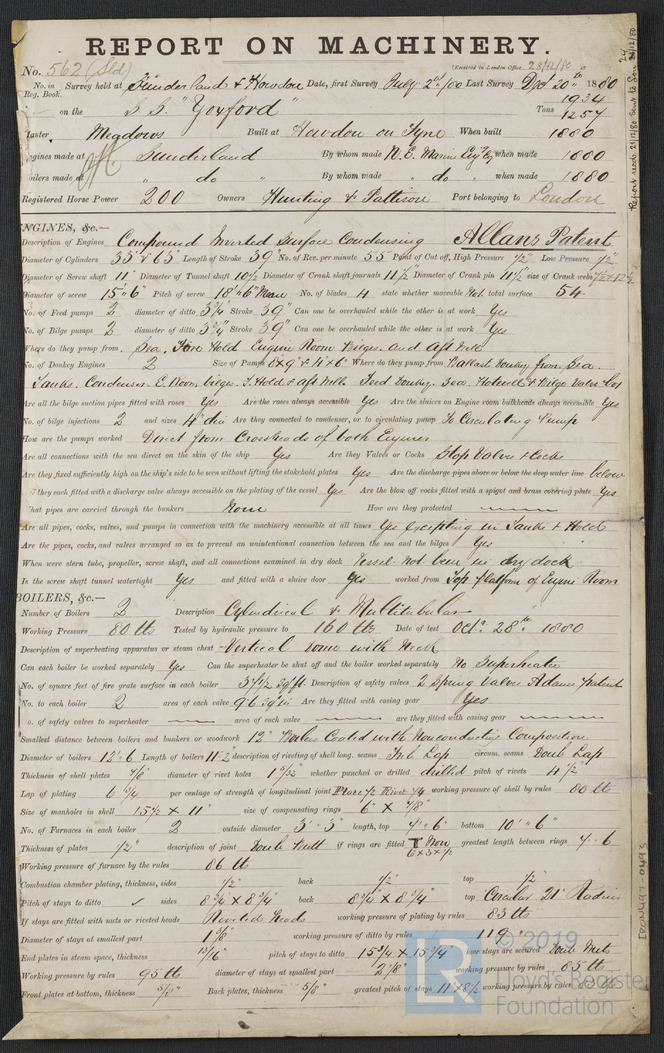 REPORT ON MACHINERY.
No. 562 (Sld) (Received in London Office 28/12/80
No. in Survey held at Sunderland & Howdon Date, first Survey July 2nd /80 Last Survey Decr 20th 1880
Reg. Book.
on the S.S. "Yoxford" Tons 1934
1257
Master Meadows Built at Howdon on Tyne When built 1880
Engines made at Sunderland By whom made N.E. Marine Engg Co when made 1880
Boilers made at " do " By whom made " do " when made 1880
Registered Horse Power 200 Owners Hunting & Pattison Port belonging to London
ENGINES, &c.—
Description of Engines Compound Inverted Surface Condensing Allans Patent
Diameter of Cylinders 35" & 65" Length of Stroke 39 No. of Rev. per minute 55 Point of Cut off, High Pressure 1/2 Low Pressure 1/2
Diameter of Screw shaft 11" Diameter of Tunnel shaft 10 1/2 Diameter of Crank shaft journals 11 1/2 Diameter of Crank pin 11 1/2 size of Crank webs
Diameter of screw 15" 6" Pitch of screw 18' 6" Mean No. of blades 4 state whether moveable Not total surface 54
No. of Feed pumps 2 diameter of ditto 3 3/4 Stroke 39" Can one be overhauled while the other is at work Yes
No. of Bilge pumps 2 diameter of ditto 3 3/4" Stroke 39" Can one be overhauled while the other is at work Yes
Where do they pump from Sea. Fore Hold Engine Room Bilges and Aft Well
No. of Donkey Engines 2 Size of Pumps 6 x 9" & 4 x 6" Where do they pump from Ballast Donkey from Sea.
Tanks. Condenser E. Room bilges. F. Hold & aft Wells Feed Donkey. Sea Hotwell & Bilge Valve Box
Are all the bilge suction pipes fitted with roses Yes Are the roses always accessible Yes Are the sluices on Engine room bulkheads always accessible Yes
No. of bilge injections 2 and sizes 4" dia Are they connected to condenser, or to circulating pump To Circulating Pump
How are the pumps worked Direct from Crossheads of both Engines
Are all connections with the sea direct on the skin of the ship Yes Are they Valves or Cocks Stop Valves & Cocks
Are they fixed sufficiently high on the ship's side to be seen without lifting the stokehold plates Yes Are the discharge pipes above or below the deep water line below
they each fitted with a discharge valve always accessible on the plating of the vessel Yes Are the blow off cocks fitted with a spigot and brass covering plate Yes
What pipes are carried through the bunkers None How are they protected
Are all pipes, cocks, valves, and pumps in connection with the machinery accessible at all times Yes excepting in Tanks & Hold
Are the pipes, cocks, and valves arranged so as to prevent an unintentional connection between the sea and the bilges Yes
When were stern tube, propeller, screw shaft, and all connections examined in dry dock Vessel not been in dry dock
Is the screw shaft tunnel watertight Yes and fitted with a sluice door Yes worked from Top platform of Engine Room
BOILERS, &c.—
Number of Boilers 2 Description Cylindrical & Multitubular
Working Pressure 80 lbs Tested by hydraulic pressure to 160 lbs Date of test Octr 28th 1880
Description of superheating apparatus or steam chest Vertical Dome with Neck
Can each boiler be worked separately Yes Can the superheater be shut off and the boiler worked separately No Superheater
No. of square feet of fire grate surface in each boiler 34 1/2 sq ft. Description of safety valves 2 Spring Valves Adams patent
No. to each boiler 2 area of each valve 9.6 sq in Are they fitted with easing gear Yes
No. of safety valves to superheater area of each valve are they fitted with easing gear
Smallest distance between boilers and bunkers or woodwork 12" Boilers Coated with Nonconductive Composition
Diameter of boilers 13' 6 Length of boilers 11' 2 description of riveting of shell long. seams Treb Lap circum. seams Doub Lap
Thickness of shell plates diameter of rivet holes 1 5/32" whether punched or drilled drilled pitch of rivets 4 1/2"
Lap of plating 6 3/4 per centage of strength of longitudinal joint working pressure of shell by rules 80 lb
Size of manholes in shell 15 1/2 x 11" size of compensating rings 6" x 7/8"
No. of Furnaces in each boiler 2 outside diameter 3' - 3" length, top 4" 6" bottom 10' " 6"
Thickness of plates 1/2" description of joint Doub Butt if rings are fitted T Iron greatest length between rings 4 - 6
6 x 3 x 1/2
Working pressure of furnace by the rules 86 lb
Combustion chamber plating, thickness, sides 1/2" back 1/2" top 1/2"
Pitch of stays to ditto sides 8 3/4 x 8 3/4 back 8 3/4 x 8 3/4" top Circular 21" Radius
If stays are fitted with nuts or riveted heads Riveted heads working pressure of plating by rules 83 lbs
Diameter of stays at smallest part working pressure of ditto by rules 119
End plates in steam space, thickness 13/16" pitch of stays to ditto 15 3/4 x 15 3/4 how stays are secured Doub Nuts
Working pressure by rules 95 lb diameter of stays at smallest part 2 1/8" working pressure by rules 85 lb
Front plates at bottom, thickness 5/8" Back plates, thickness 5/8" greatest pitch of stays working pressure by rules
© 2019
LR Lloyd's Register
Foundation
IRON497-0493